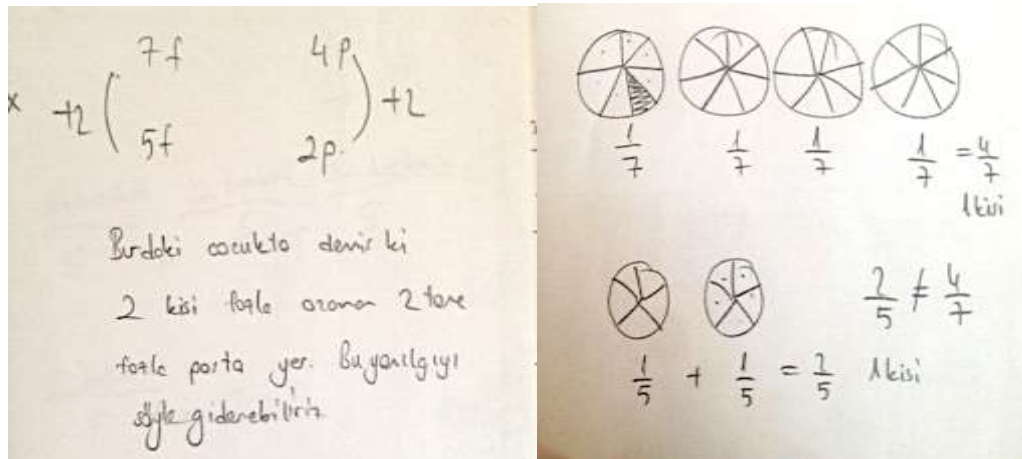 7f 4p
x +2 ( ) +2
5f 2p.
Burdaki cocukta demis ki
2 kisi fazla ozaman 2 tane
fazla pasta yer. Bu yanılgıyı
şöyle giderebiliriz.
1/7 1/7 1/7 1/7 = 4/7
1 kisi
2/5 ≠ 4/7
1/5 + 1/5 = 2/5 1 kisi